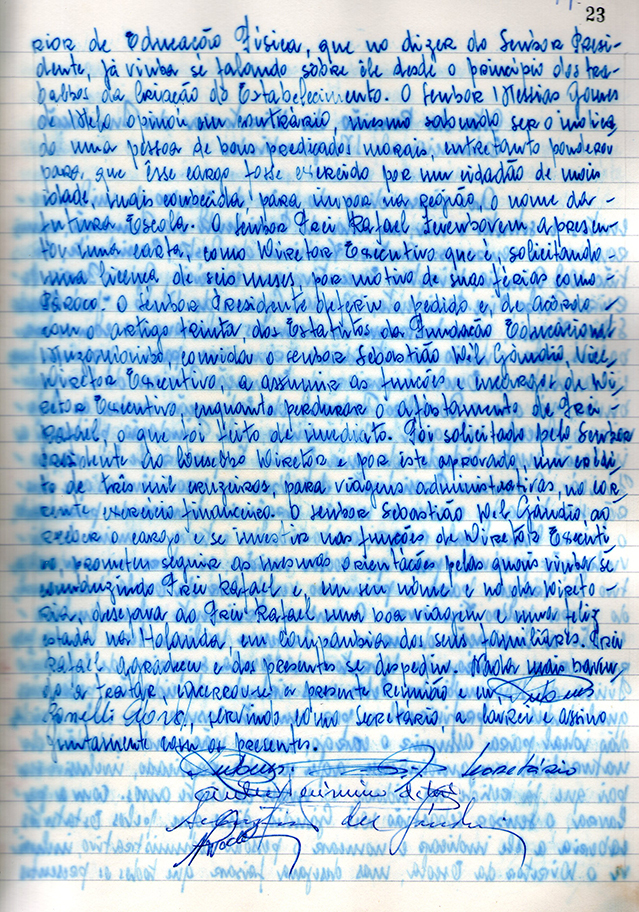 23
rior de Educação Física, que no dizer do Senhor Presi-
dente, já vinha se falando sôbre ele desde o princípio dos tra-
balhos da criação do Estabelecimento. O Senhor Messias Gomes
de Melo opinou em contrário, mesmo sabendo ser o indica
do uma pessoa de bons predicados morais, entretanto ponderou
para, que êsse cargo fosse exercido por um cidadão de mais
idade, mais conhecida para impor na região, o nome da -
futura Escola. O Senhor Frei Rafael apresen-
tou uma carta, como Diretor Executivo que é, solicitando -
uma licença de seis meses, por motivo de suas férias como -
Pároco. O Senhor Presidente deferiu o pedido e, de acôrdo -
com o artigo trinta, dos Estatutos da Fundação Educacional
Muzambinho, convidou o senhor Sebastião Del Gáudio, Vice
Diretor Executivo, a assumir as funções e encargos de Di-
retor Executivo, enquanto perdurar o afastamento de Frei -
Rafael, o que foi feito de imediato. Foi solicitado pelo Senhor
Presidente do Conselho Diretor e por este aprovado, um crédi
to de três mil cruzeiros, para viagens administrativas, no cor
rente exercício financeiro. O senhor Sebastião Del Gáudio, ao
receber o cargo e se investir nas funções de Diretor Executi
vo prometeu seguir as mesmas orientações pelas quais vinha se
conduzindo Frei Rafael e, em seu nome e no da Direto -
ria, desejava ao Frei Rafael uma boa viagem e uma feliz
estada na Holanda, em companhia dos seus familiares. Frei
Rafael agradeceu e dos presentes se despediu. Nada mais haven
do a tratar, encerrou-se a presente Reunião e eu, Rubens
servindo como Secretário, a lavrei e assino
juntamente com os presentes.
Rubens Secretário